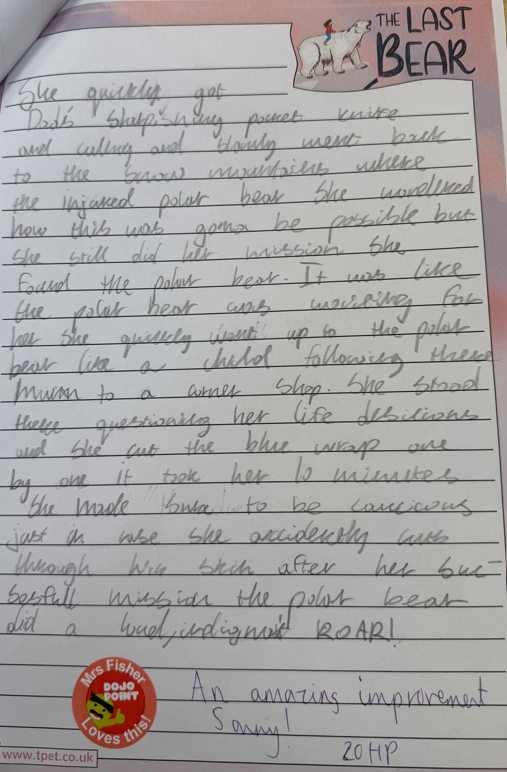 THE LAST
BEAR
She quickly got
Dad's sharp, shiny pocket knife
and calmly and slowly went back
to the snow mountains where
the injured polar bear She wondered
how this was gonna be possible but
she still did her mission She
found the polar bear. It was like
the polar bear was waiting for
her she quickly went up to the polar
bear like a child following there
mum to a corner shop. She stood
there questioning her life desicions
and she cut the blue wrap one
by one it took her 10 minutes
She made sure to be caucious
just in case she accidently cuts
through his skin after her suc-
sesfull mission the polar bear
did a loud, indignant ROAR!
Mrs Fisher
DOJO
POINT
Loves this!
An amazing improvement
Sonny!
20HP
www.tpet.co.uk